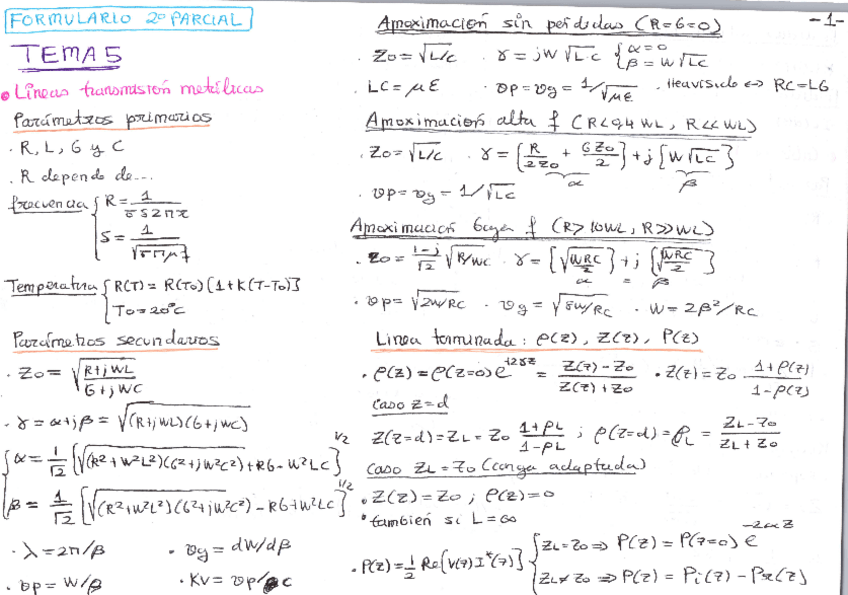 FORMULARIO 2º PARCIAL
TEMA 5
• Líneas transmisión metálicas
Parámetros primarios
· R, L, G y C
· R depende de...
frecuencia { R = 1/(σδ2πr)
δ = 1/√(σπμf)
Temperatura { R(T) = R(To) [1+K(T-To)]
To = 20ºC
Parámetros secundarios
· Zo = √((R+jWL)/(G+jWC))
· γ = α+jβ = √((R+jWL)(G+jWC))
{ α = 1/√2 [√((R²+W²L²)(G²+jW²C²)) + RG - W²LC]^1/2
β = 1/√2 [√((R²+W²L²)(G²+jW²C²)) - RG + W²LC]^1/2
· λ = 2π/β · vg = dW/dβ
· vp = W/β · Kv = vp/c
-1-
Aproximación sin pérdidas (R=G=0)
· Zo = √(L/C) · γ = jW√LC { α = 0
β = W√LC
· LC = με · vp = vg = 1/√με · Heaviside ⇔ RC = LG
Aproximación alta f (R<0,4 WL, R<<WL)
· Zo = √(L/C) · γ = [R/2Zo + GZo/2] + j[W√LC]
α β
· vp = vg = 1/√LC
Aproximación baja f (R>10WL, R>>WL)
· Zo = (1-j)/√2 √(R/WC) · γ = [√(WRC/2)] + j[√(WRC/2)]
α = β
· vp = √(2W/RC) · vg = √(8W/RC) · W = 2β²/RC
Línea terminada: ρ(z), Z(z), P(z)
· ρ(z) = ρ(z=0) e^+2γz = (Z(z) - Zo)/(Z(z) + Zo) · Z(z) = Zo · (1+ρ(z))/(1-ρ(z))
Caso z=d
Z(z=d) = ZL = Zo (1+ρL)/(1-ρL) ; ρ(z=d) = ρL = (ZL - Zo)/(ZL + Zo)
Caso ZL = Zo (carga adaptada)
· Z(z) = Zo ; ρ(z) = 0
• también si L = ∞
· P(z) = 1/2 Re{V(z) I*(z)} { ZL = Zo ⇒ P(z) = P(z=0) e^-2αz
ZL ≠ Zo ⇒ P(z) = Pi(z) - Pr(z)